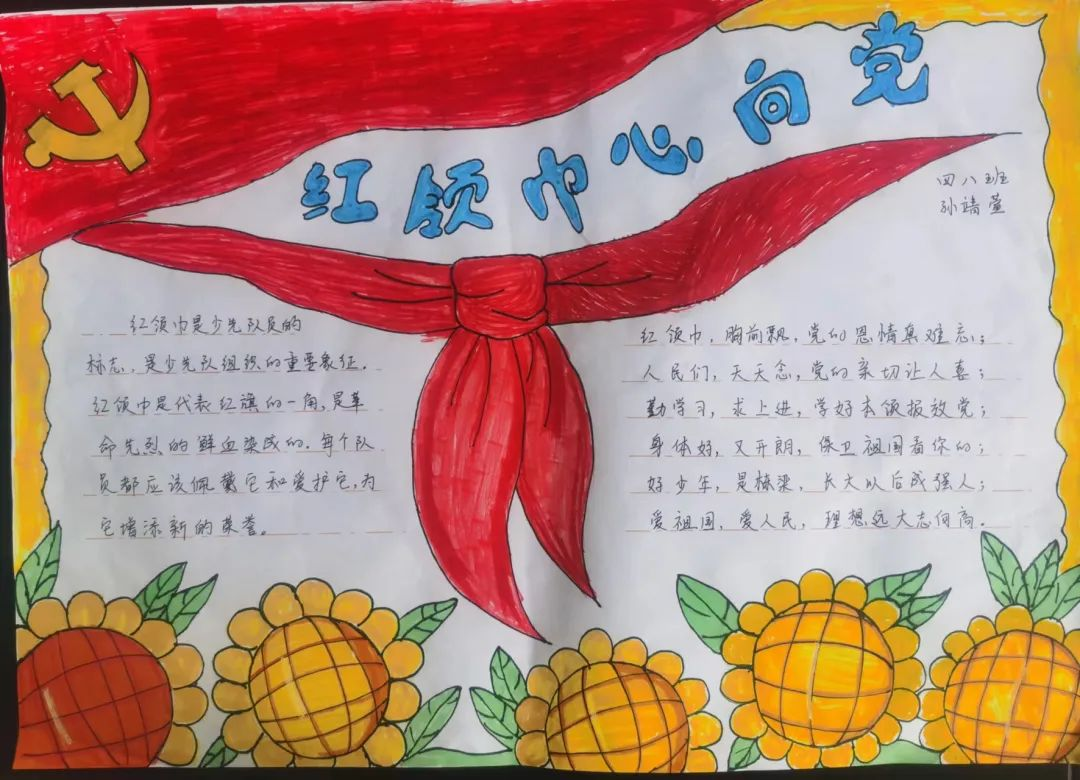 红领巾心向党
四八班
孙靖萱
红领巾是少先队员的
标志，是少先队组织的重要象征。
红领巾是代表红旗的一角，是革
命先烈的鲜血染成的。每个队
员都应该佩戴它和爱护它，为
它增添新的荣誉。
红领巾，胸前飘，党的恩情真难忘；
人民们，天天念，党的亲切让人喜；
勤学习，求上进，学好本领报放党；
身体好，又开朗，保卫祖国看你的；
好少年，是栋梁，长大以后成强人；
爱祖国，爱人民，理想远大志向高。